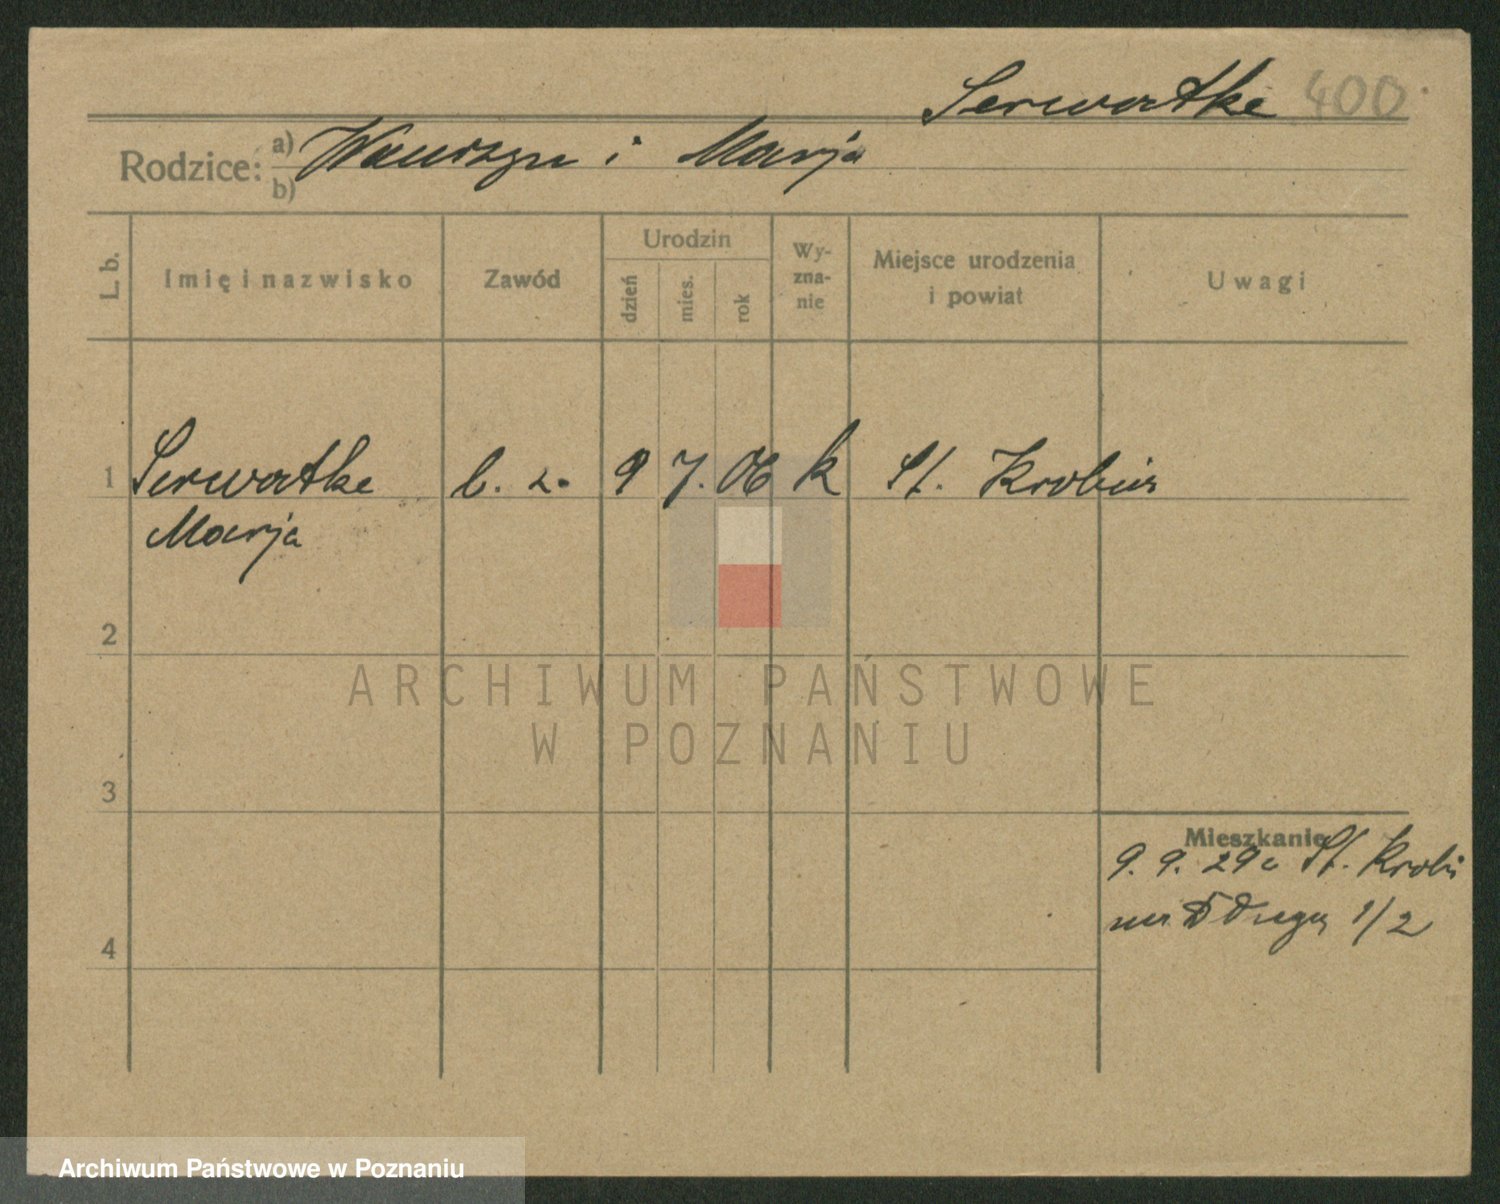 Serwatke 400
Rodzice: a) Wawrzyn i Marja
b)
L. b.
Imię i nazwisko
Zawód
Urodzin
dzień
mies.
rok
Wy-
zna-
nie
Miejsce urodzenia
i powiat
Uwagi
1 Serwatke b. z. 9 7. 06 k St. Krobia
Marja
2
3
4
Mieszkanie
9. 9. 29 St. Krobi
1/2
ARCHIWUM PAŃSTWOWE
W POZNANIU
Archiwum Państwowe w Poznaniu